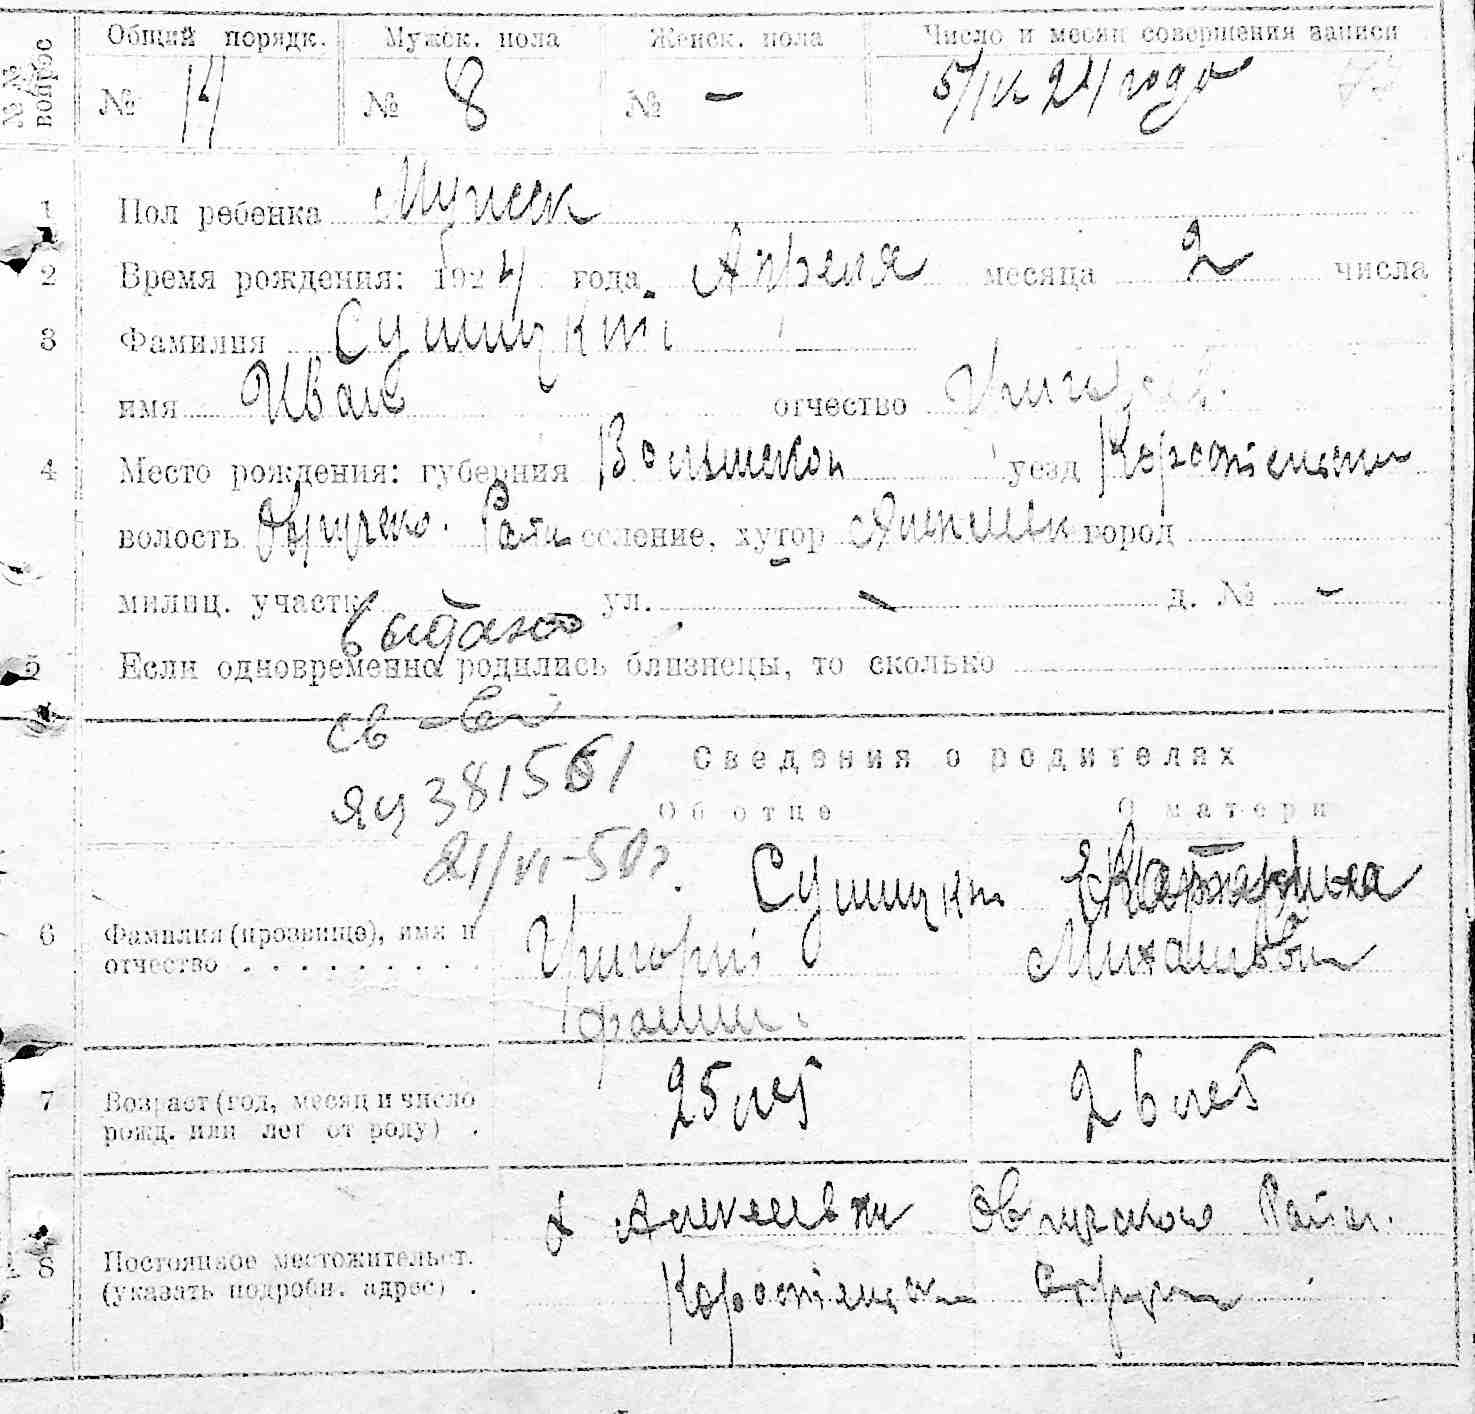 №№ вопрос
Общий порядк. Мужск. пола Женск. пола Число и месяц совершения записи
№ 14 № 8 № - 5/IV 24 года
1 Пол ребенка Мужск
2 Время рождения: 1924 года Апреля месяца 2 числа
3 Фамилия Сушицкий
имя Иван отчество Григорьев.
4 Место рождения: губерния Волынской уезд Коростеньский
волость Овручско. Район селение, хутор город
милиц. участк. - ул. - д. № -
выдано
5 Если одновременно родились близнецы, то сколько
св-во
ЯЦ 381561
21/VI-50г.
Сведения о родителях
Об отце О матери
6 Фамилия (прозвище), имя и отчество Сушицкий Екатерина
Григорий Михайлов
7 Возраст (год, месяц и число рожд. или лет от роду) 25 лет 26 лет
8 Постоянное местожительст. (указать подробн. адрес) Овручского Район.
Коростеньск округи